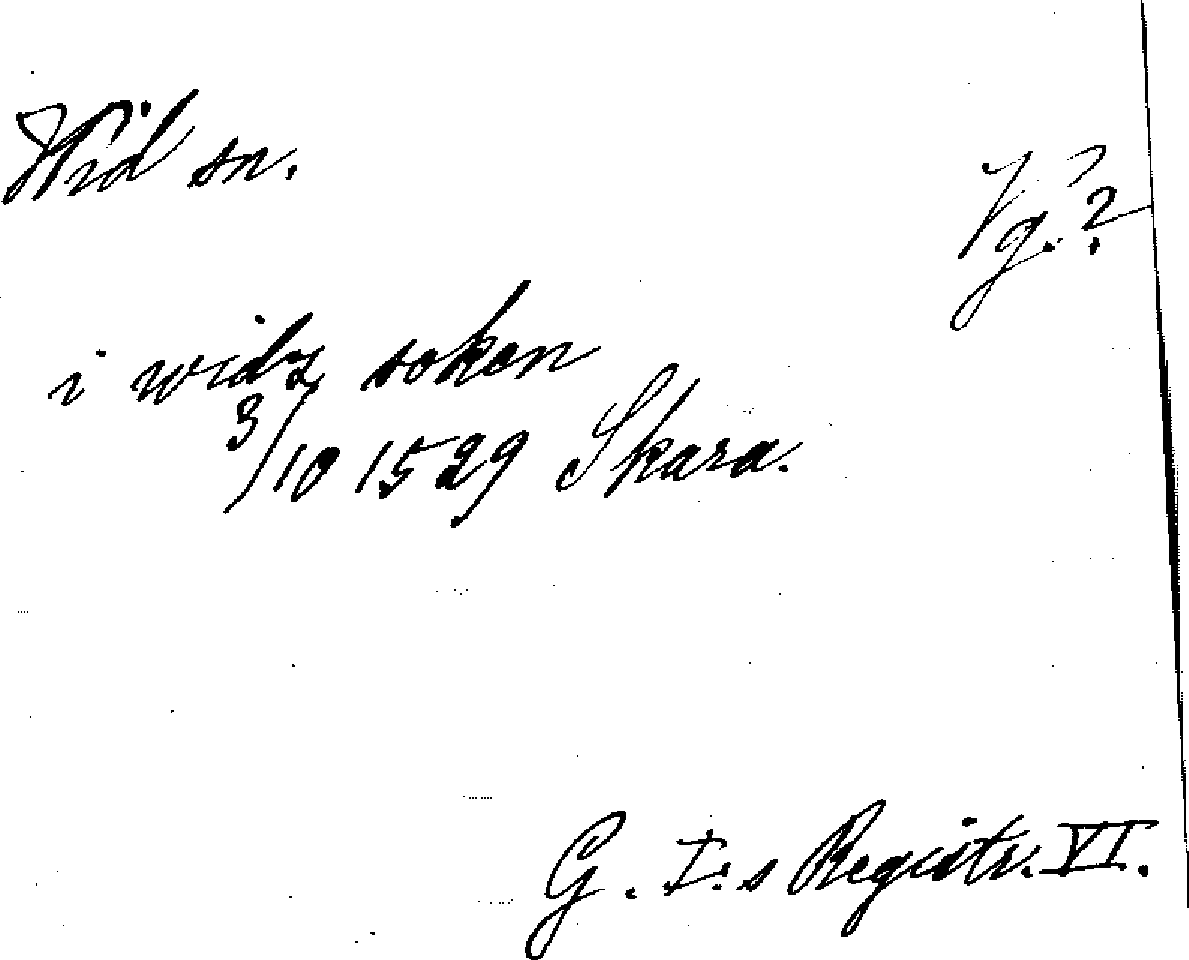 Wid sn.
Vg.?
i widz soken
3/10 1529 Skara.
G. I:s Registr. VI.